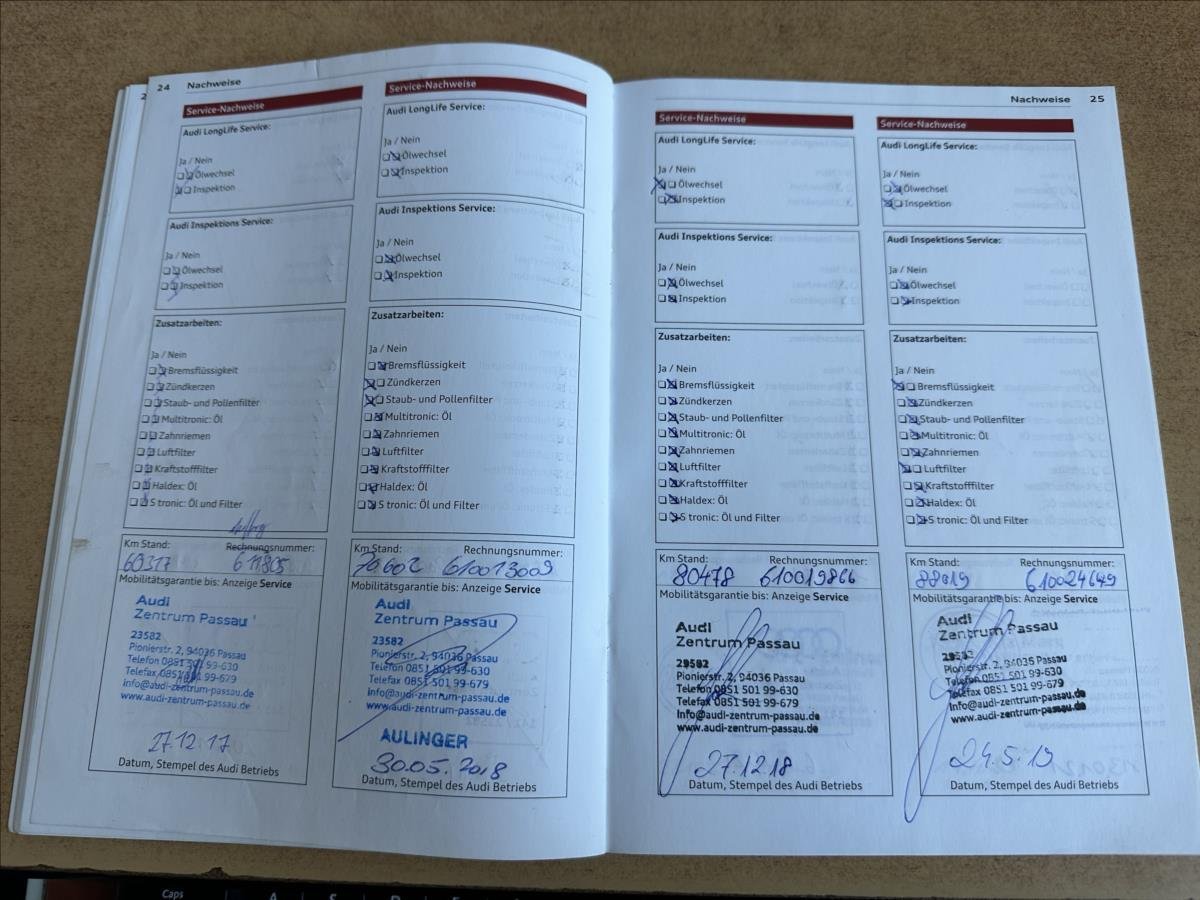 24 Nachweise
2
Service-Nachweise
Audi LongLife Service:
Ja / Nein
Ölwechsel
Inspektion
Audi Inspektions Service:
Ja / Nein
Ölwechsel
Inspektion
Zusatzarbeiten:
Ja / Nein
Bremsflüssigkeit
Zündkerzen
Staub- und Pollenfilter
Multitronic: Öl
Zahnriemen
Luftfilter
Kraftstofffilter
Haldex: Öl
S tronic: Öl und Filter
Km Stand: Rechnungsnummer:
60317 611805
Mobilitätsgarantie bis: Anzeige Service
Audi
Zentrum Passau
23582
Pionierstr. 2, 94036 Passau
Telefon 0851 501 99-630
Telefax 0851 501 99-679
info@audi-zentrum-passau.de
www.audi-zentrum-passau.de
27.12.17
Datum, Stempel des Audi Betriebs
Service-Nachweise
Audi LongLife Service:
Ja / Nein
Ölwechsel
Inspektion
Audi Inspektions Service:
Ja / Nein
Ölwechsel
Inspektion
Zusatzarbeiten:
Ja / Nein
Bremsflüssigkeit
Zündkerzen
Staub- und Pollenfilter
Multitronic: Öl
Zahnriemen
Luftfilter
Kraftstofffilter
Haldex: Öl
S tronic: Öl und Filter
Km Stand: Rechnungsnummer:
70602 610013009
Mobilitätsgarantie bis: Anzeige Service
Audi
Zentrum Passau
23582
Pionierstr. 2, 94036 Passau
Telefon 0851 501 99-630
Telefax 0851 501 99-679
info@audi-zentrum-passau.de
www.audi-zentrum-passau.de
AULINGER
30.05.2018
Datum, Stempel des Audi Betriebs
Nachweise 25
Service-Nachweise
Audi LongLife Service:
Ja / Nein
Ölwechsel
Inspektion
Audi Inspektions Service:
Ja / Nein
Ölwechsel
Inspektion
Zusatzarbeiten:
Ja / Nein
Bremsflüssigkeit
Zündkerzen
Staub- und Pollenfilter
Multitronic: Öl
Zahnriemen
Luftfilter
Kraftstofffilter
Haldex: Öl
S tronic: Öl und Filter
Km Stand: Rechnungsnummer:
80478 610019866
Mobilitätsgarantie bis: Anzeige Service
Audi
Zentrum Passau
23582
Pionierstr. 2, 94036 Passau
Telefon 0851 501 99-630
Telefax 0851 501 99-679
info@audi-zentrum-passau.de
www.audi-zentrum-passau.de
27.12.18
Datum, Stempel des Audi Betriebs
Service-Nachweise
Audi LongLife Service:
Ja / Nein
Ölwechsel
Inspektion
Audi Inspektions Service:
Ja / Nein
Ölwechsel
Inspektion
Zusatzarbeiten:
Ja / Nein
Bremsflüssigkeit
Zündkerzen
Staub- und Pollenfilter
Multitronic: Öl
Zahnriemen
Luftfilter
Kraftstofffilter
Haldex: Öl
S tronic: Öl und Filter
Km Stand: Rechnungsnummer:
88019 610024649
Mobilitätsgarantie bis: Anzeige Service
Audi
Zentrum Passau
23582
Pionierstr. 2, 94036 Passau
Telefon 0851 501 99-630
Telefax 0851 501 99-679
info@audi-zentrum-passau.de
www.audi-zentrum-passau.de
24.5.19
Datum, Stempel des Audi Betriebs
Caps A S D